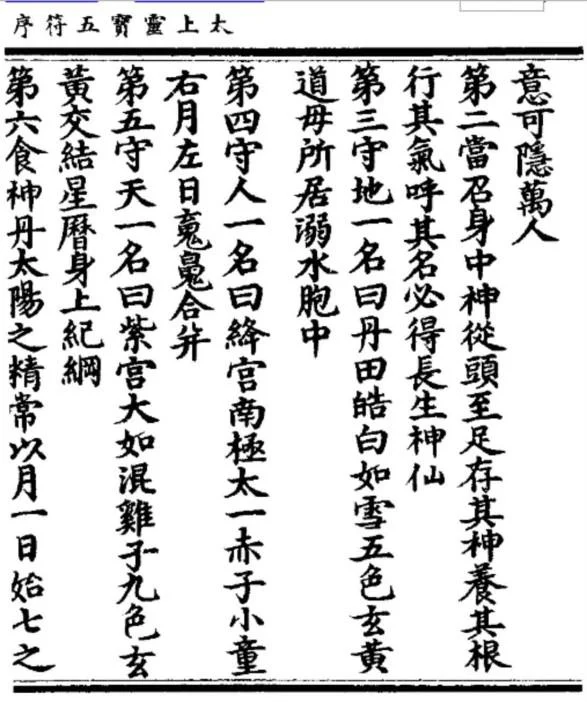 太上靈寶五符序
意可隱萬人
第二當召身中神從頭至足存其神養其根
行其氣呼其名必得長生神仙
第三守地一名曰丹田皓白如雪五色玄黃
道母所居溺水胞中
第四守人一名曰絳宮南極太一赤子小童
右月左日䰟㲋合并
第五守天一名曰紫宮大如混雞子九色玄
黃交結星曆身上紀綱
第六食神丹太陽之精常以月一日始七之